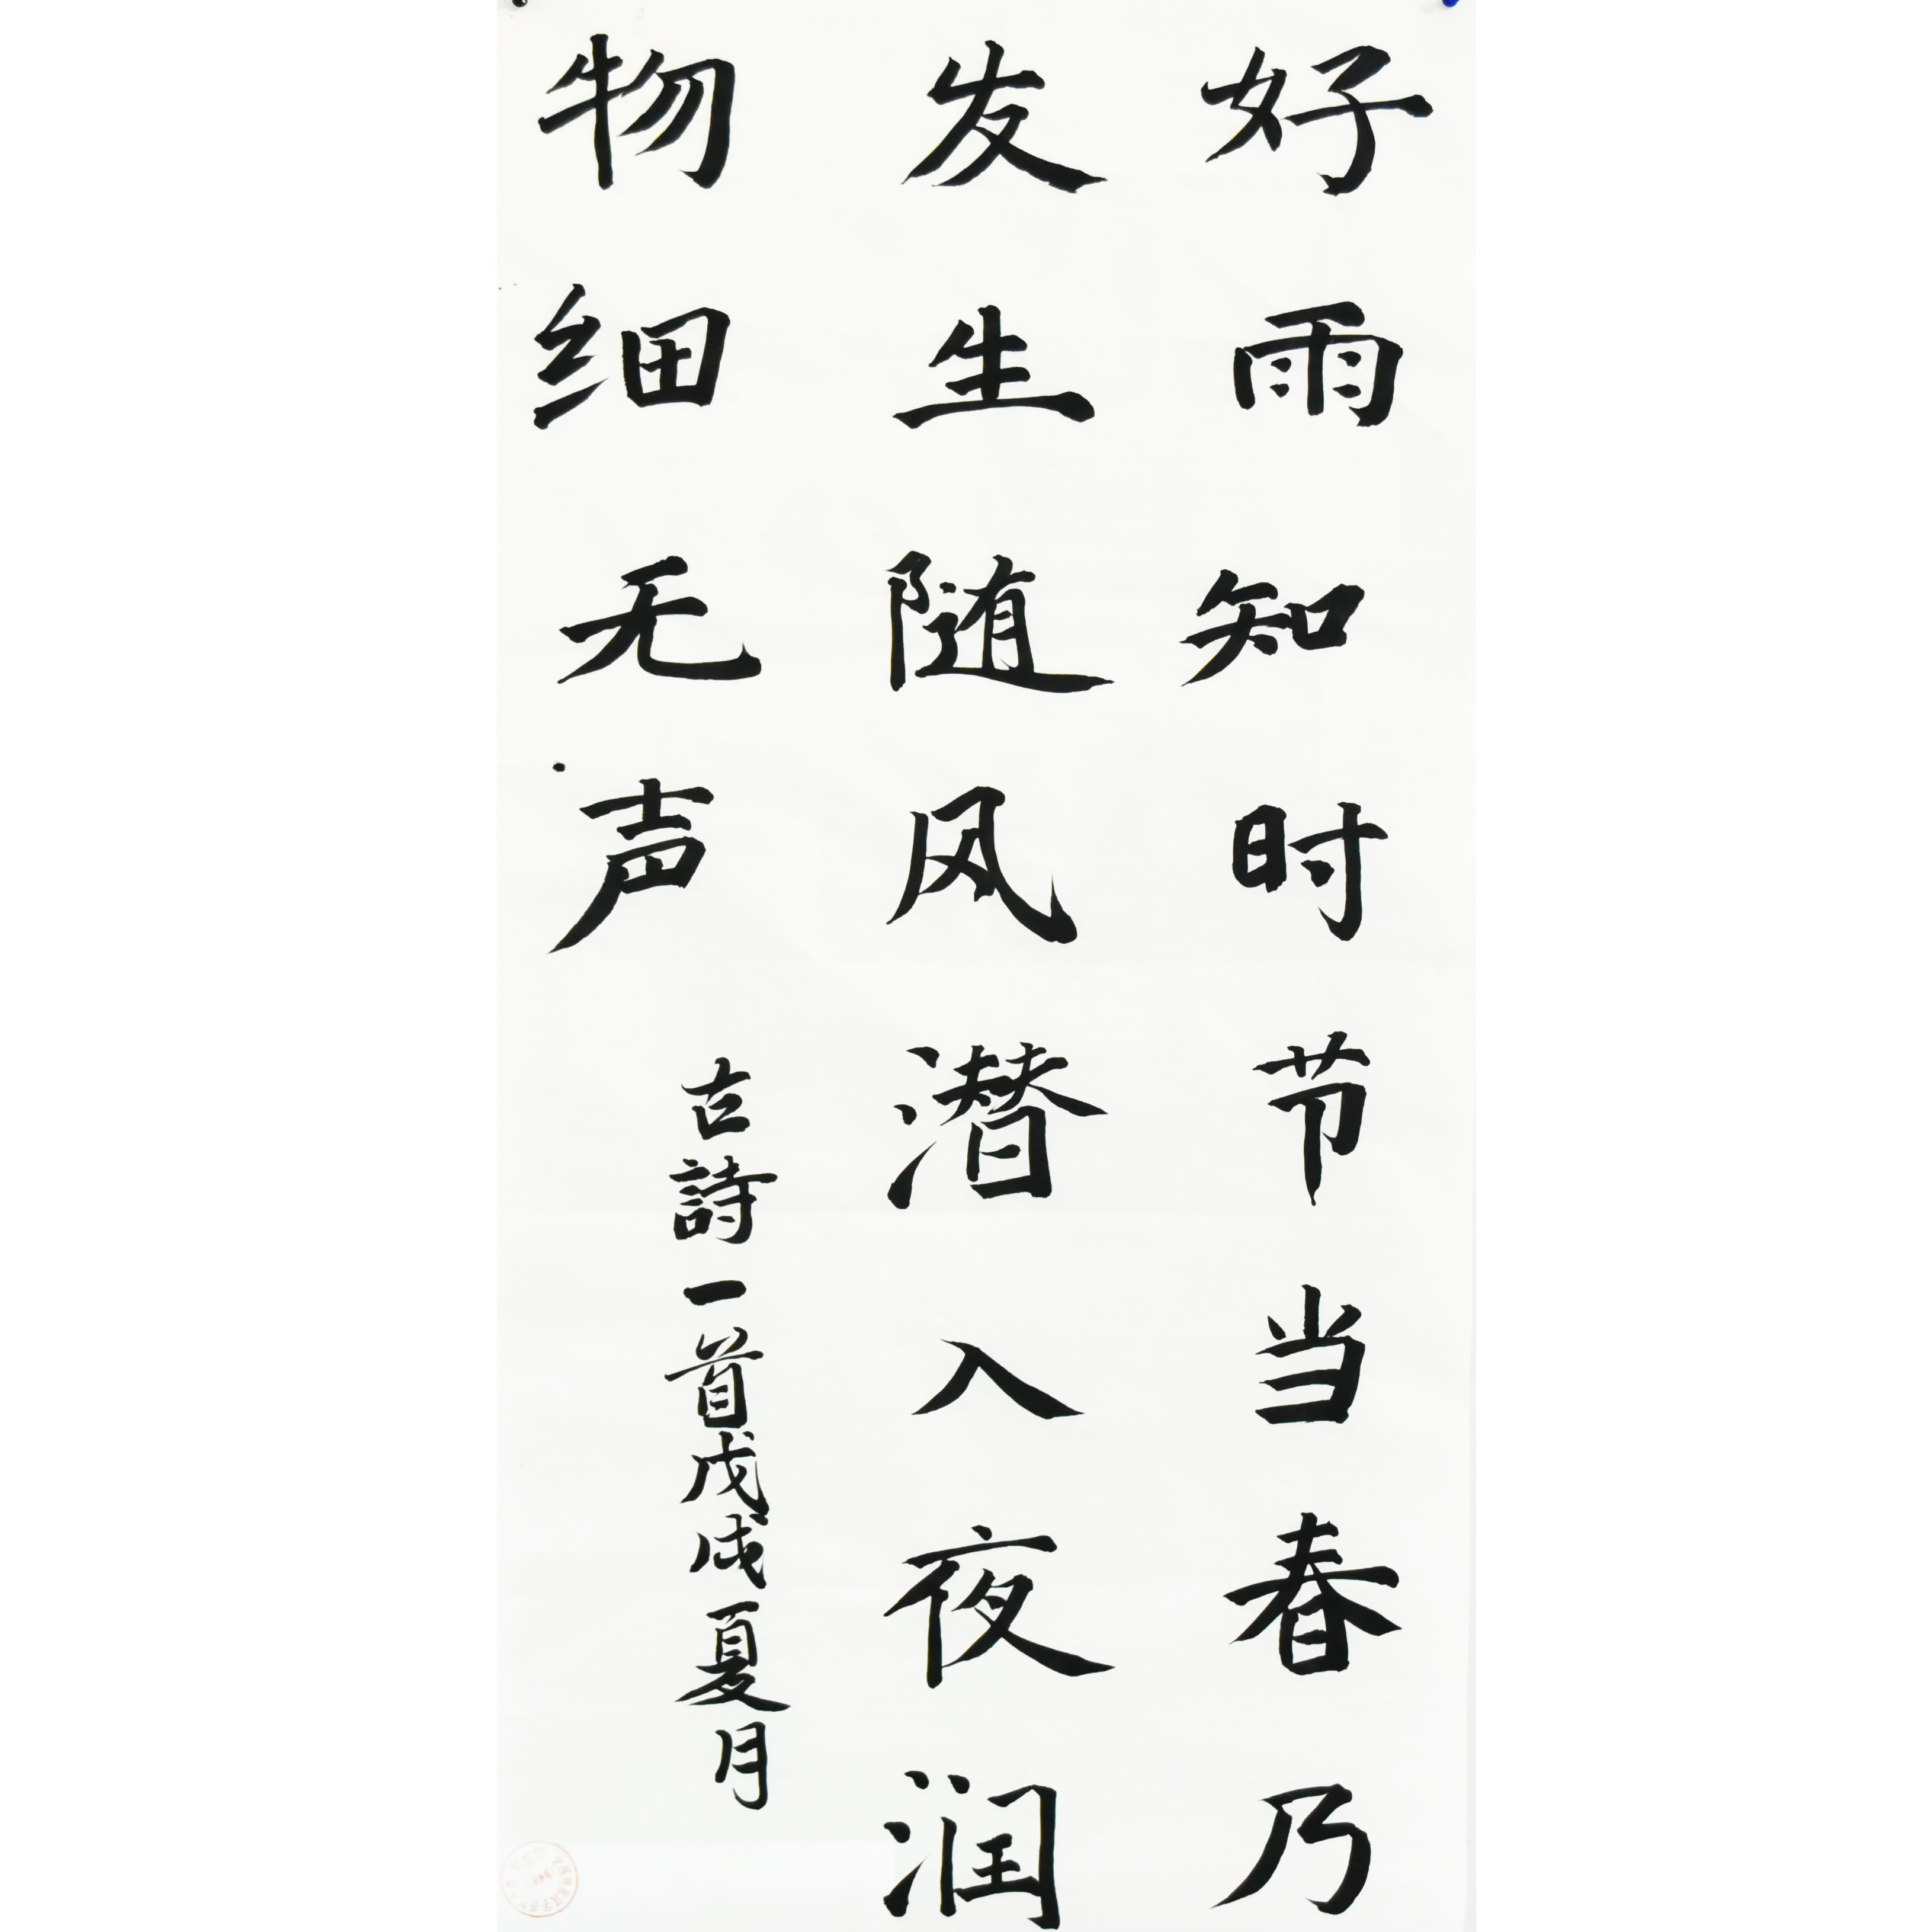 好雨知时节当春乃
发生随风潜入夜润
物细无声
古詩一首戊戌夏月